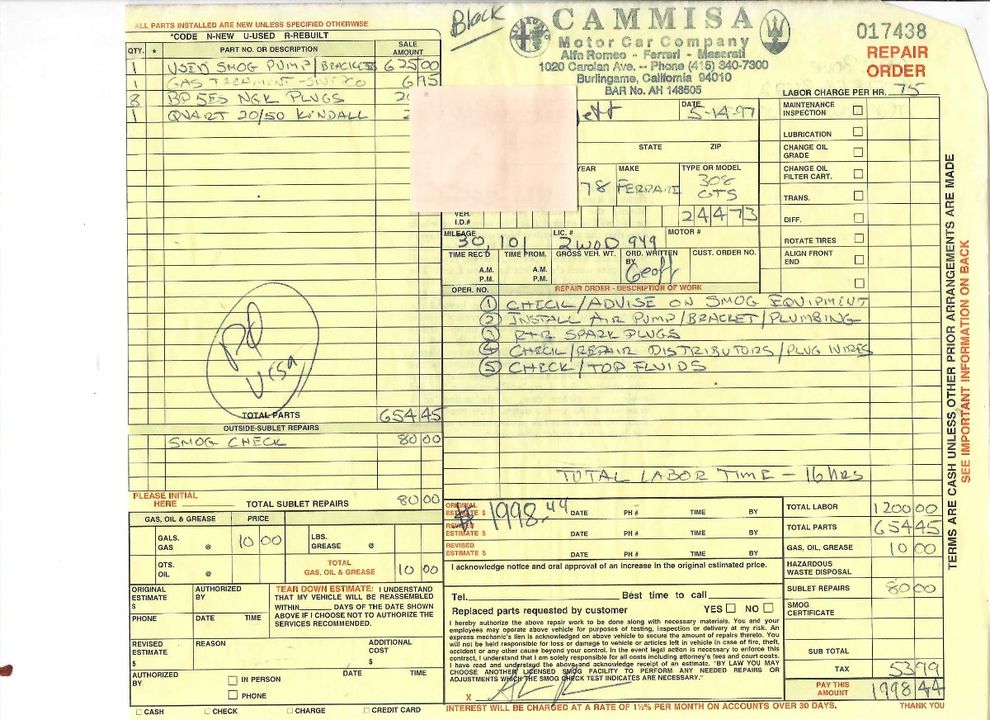 ALL PARTS INSTALLED ARE NEW UNLESS SPECIFIED OTHERWISE
*CODE N-NEW U-USED R-REBUILT
QTY. * PART NO. OR DESCRIPTION SALE AMOUNT
1 USED SMOG PUMP/BRACKETS 625 00
1 GAS TREATMENT - 6 95
8 BP5ES NGK PLUGS
1 QUART 20/50 KENDALL
PD VISA
TOTAL PARTS 654 45
OUTSIDE-SUBLET REPAIRS
SMOG CHECK 80 00
PLEASE INITIAL HERE TOTAL SUBLET REPAIRS 80 00
GAS, OIL & GREASE PRICE
GALS. GAS @ 10 00 LBS. GREASE @
QTS. OIL @ TOTAL GAS, OIL & GREASE 10 00
ORIGINAL ESTIMATE $ AUTHORIZED BY
PHONE DATE TIME
TEAR DOWN ESTIMATE: I UNDERSTAND
THAT MY VEHICLE WILL BE REASSEMBLED
WITHIN DAYS OF THE DATE SHOWN
ABOVE IF I CHOOSE NOT TO AUTHORIZE THE
SERVICES RECOMMENDED.
REVISED ESTIMATE $ REASON ADDITIONAL COST $
AUTHORIZED BY IN PERSON PHONE DATE TIME
CASH CHECK CHARGE CREDIT CARD
Black
CAMMISA
Motor Car Company
Alfa Romeo - Ferrari - Maserati
1020 Carolan Ave. -- Phone (415) 340-7300
Burlingame, California 94010
BAR No. AH 148505
017438
REPAIR ORDER
LABOR CHARGE PER HR. 75
DATE 5-14-97
STATE ZIP
YEAR MAKE TYPE OR MODEL
78 FERRARI 308 GTS
VEH. I.D.# 24473
MILEAGE LIC. # MOTOR #
30,101 2WOD 949
TIME REC'D TIME PROM. GROSS VEH. WT. ORD. WRITTEN BY CUST. ORDER NO.
A.M. P.M. A.M. P.M. Geoff
OPER. NO. REPAIR ORDER - DESCRIPTION OF WORK
1 CHECK/ADVISE ON SMOG EQUIPMENT
2 INSTALL AIR PUMP/BRACKET/PLUMBING
3 R+R SPARK PLUGS
4 CHECK/REPAIR DISTRIBUTORS/PLUG WIRES
5 CHECK/TOP FLUIDS
TOTAL LABOR TIME - 16 HRS
MAINTENANCE INSPECTION
LUBRICATION
CHANGE OIL GRADE
CHANGE OIL FILTER CART.
TRANS.
DIFF.
ROTATE TIRES
ALIGN FRONT END
TERMS ARE CASH UNLESS OTHER PRIOR ARRANGEMENTS ARE MADE
SEE IMPORTANT INFORMATION ON BACK
ORIGINAL ESTIMATE $ 1998.44 DATE PH # TIME BY
REVISED ESTIMATE $ DATE PH # TIME BY
REVISED ESTIMATE $ DATE PH # TIME BY
I acknowledge notice and oral approval of an increase in the original estimated price.
Tel. Best time to call
Replaced parts requested by customer YES NO
I hereby authorize the above repair work to be done along with necessary materials. You and your
employees may operate above vehicle for purposes of testing, inspection or delivery at my risk. An
express mechanic's lien is acknowledged on above vehicle to secure the amount of repairs thereto. You
will not be held responsible for loss or damage to vehicle or articles left in vehicle in case of fire, theft,
accident or any other cause beyond your control. In the event legal action is necessary to enforce this
contract, I understand that I am solely responsible for all costs including attorney's fees and court costs.
I have read and understand the above and acknowledge receipt of an estimate. "BY LAW YOU MAY
CHOOSE ANOTHER LICENSED SMOG FACILITY TO PERFORM ANY NEEDED REPAIRS OR
ADJUSTMENTS WHICH THE SMOG CHECK TEST INDICATES ARE NECESSARY."
X
TOTAL LABOR 1200 00
TOTAL PARTS 654 45
GAS, OIL, GREASE 10 00
HAZARDOUS WASTE DISPOSAL
SUBLET REPAIRS 80 00
SMOG CERTIFICATE
SUB TOTAL
TAX 53 99
PAY THIS AMOUNT 1998 44
INTEREST WILL BE CHARGED AT A RATE OF 1½% PER MONTH ON ACCOUNTS OVER 30 DAYS. THANK YOU